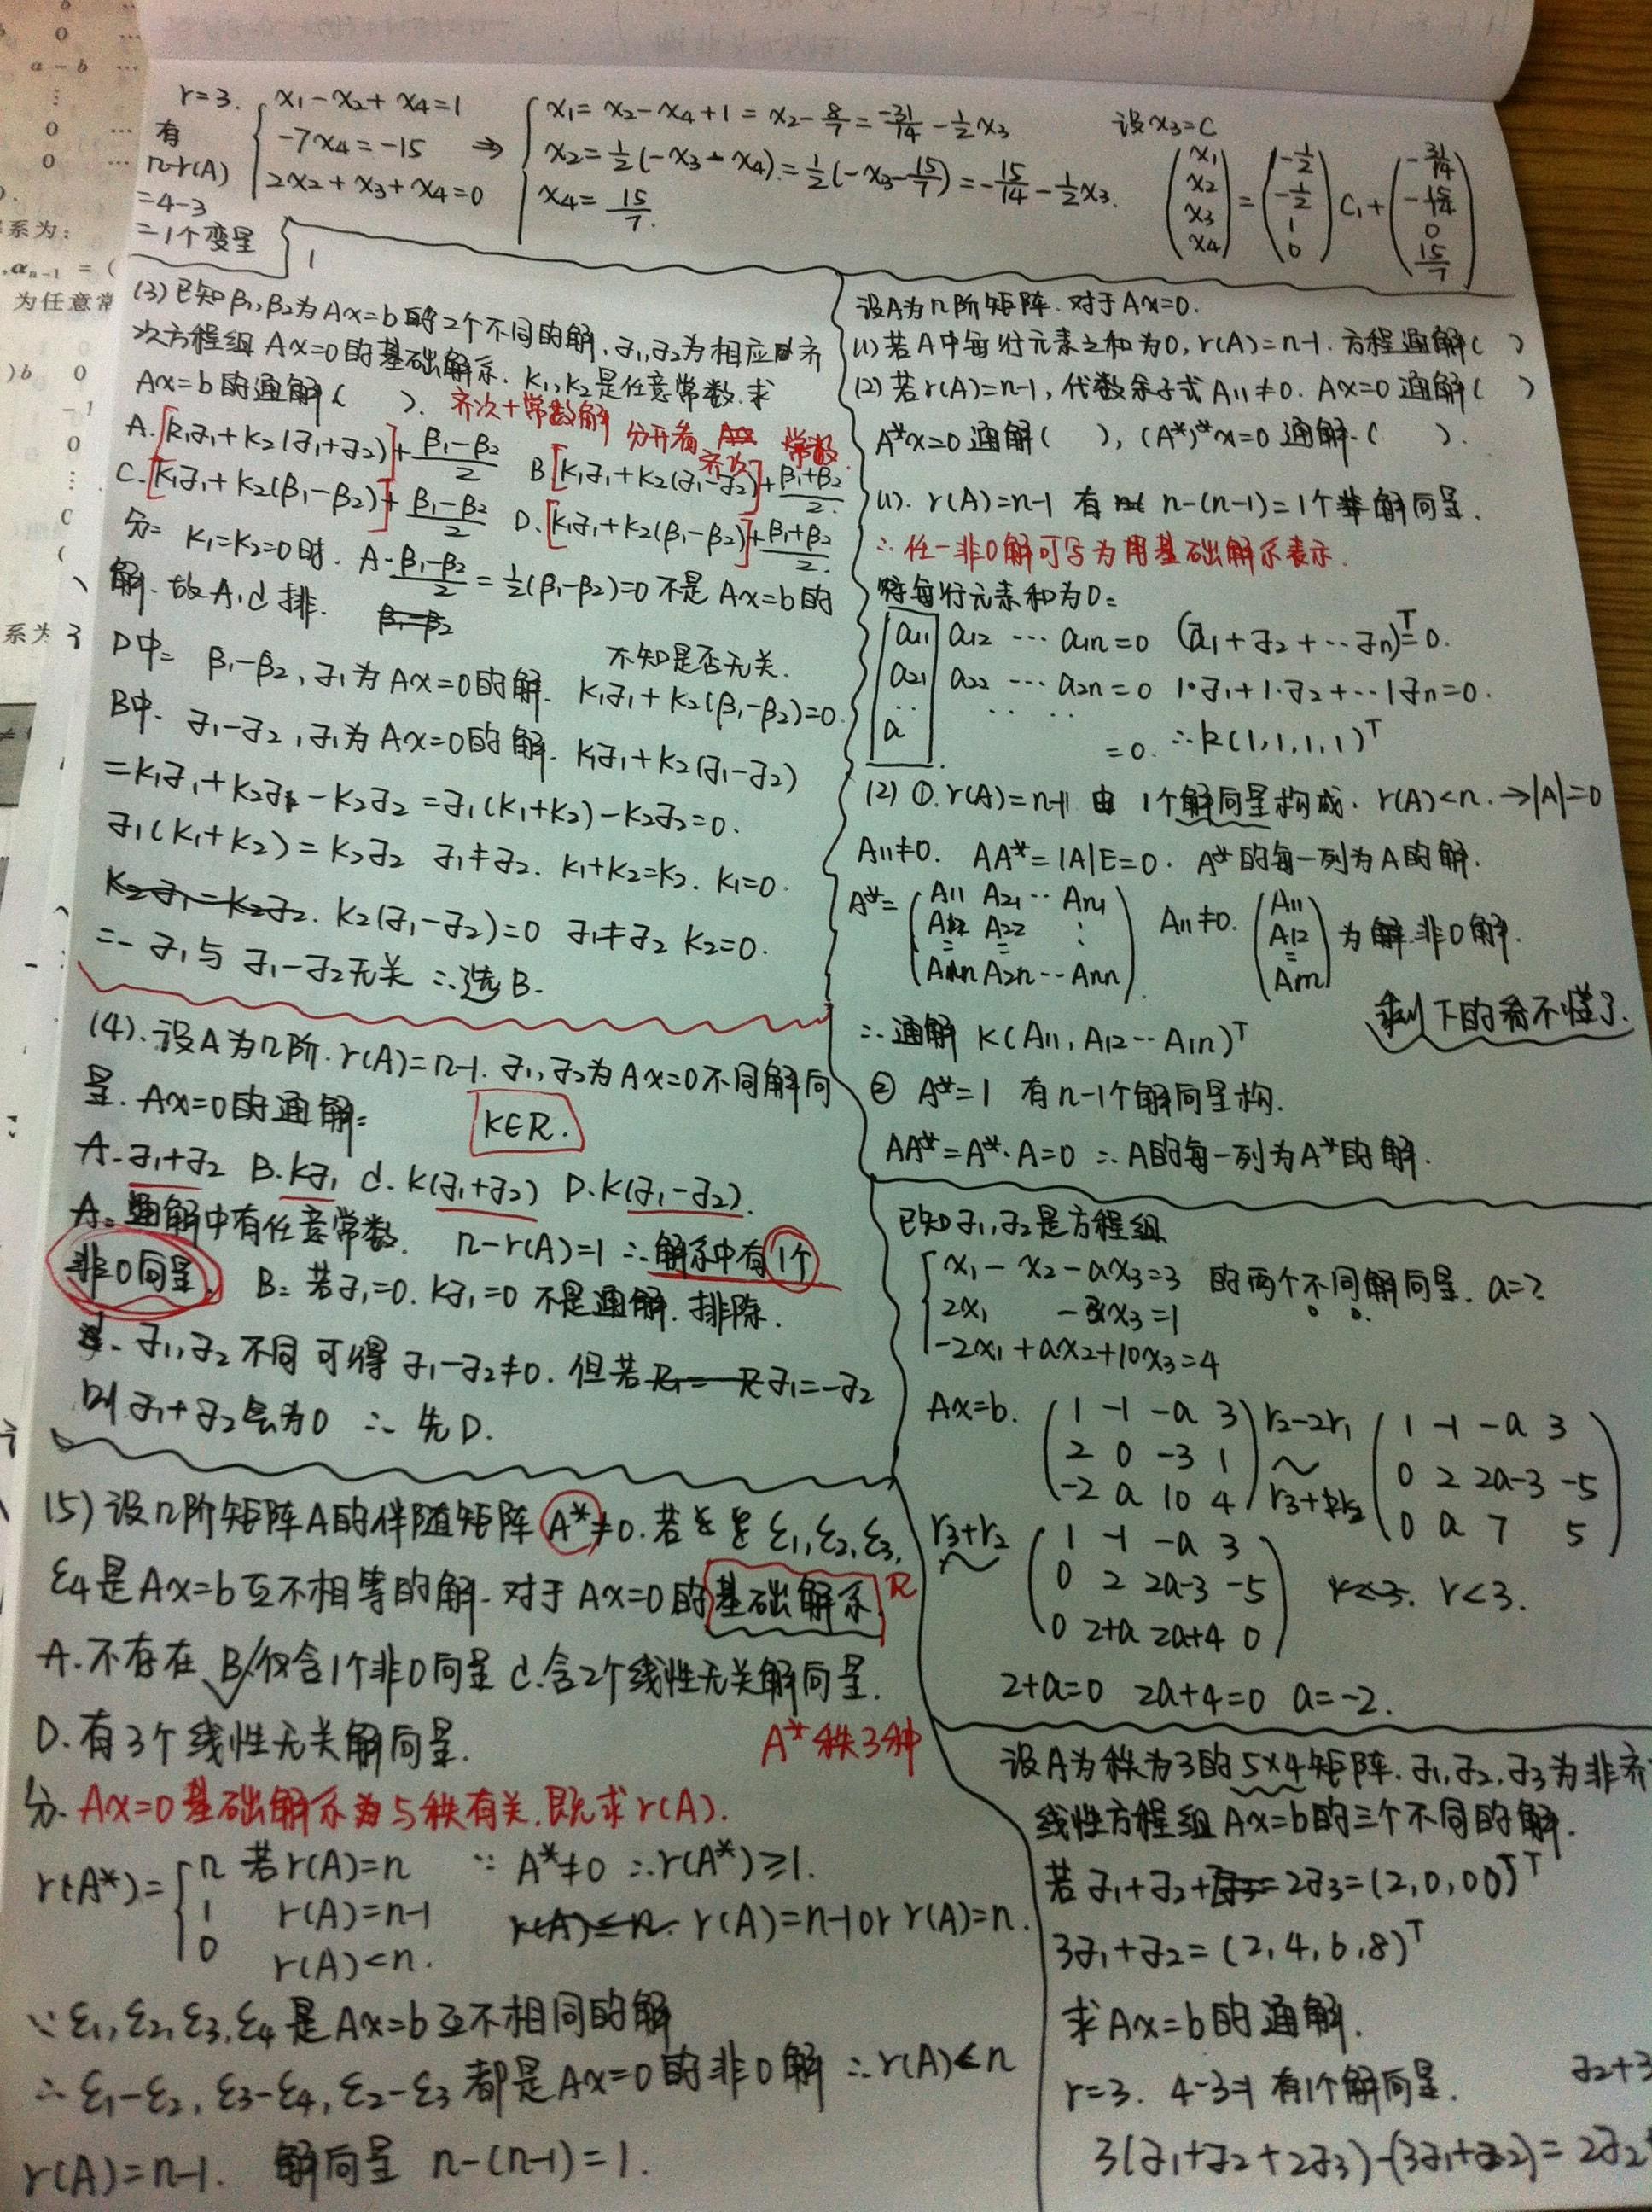 r=3.
有
n-r(A)
=4-3
=1个变量
x₁-x₂+x₄=1
-7x₄=-15
2x₂+x₃+x₄=0
⇒
x₁=x₂-x₄+1=x₂-8/7=-31/14-1/2x₃
x₂=1/2(-x₃-x₄)=1/2(-x₃-15/7)=-15/14-1/2x₃.
x₄=15/7.
设x₃=C
(x₁ x₂ x₃ x₄)=(-1/2 -1/2 1 0)C₁+(-31/14 -15/14 0 15/7)
(3)已知β₁,β₂为Ax=b的2个不同的解,α₁,α₂为相应齐
次方程组Ax=0的基础解系.k₁,k₂是任意常数.求
Ax=b的通解( ).
齐次+常数解 分开看
齐次 常数
A.[k₁α₁+k₂(α₁+α₂)]+(β₁-β₂)/2 B[k₁α₁+k₂(α₁-α₂)]+(β₁+β₂)/2.
C.[k₁α₁+k₂(β₁-β₂)]+(β₁-β₂)/2 D.[k₁α₁+k₂(β₁-β₂)]+(β₁+β₂)/2.
分= k₁=k₂=0时. A.(β₁-β₂)/2=1/2(β₁-β₂)=0不是Ax=b的
解.故A,C排. β₁=β₂
不知是否无关.
D中= β₁-β₂,α₁为Ax=0的解. k₁α₁+k₂(β₁-β₂)=0.
B中. α₁-α₂,α₁为Ax=0的解. k₁α₁+k₂(α₁-α₂)
=k₁α₁+k₂α₁-k₂α₂=α₁(k₁+k₂)-k₂α₂=0.
α₁(k₁+k₂)=k₂α₂ α₁≠α₂. k₁+k₂=k₂. k₁=0.
k₂α₁=k₂α₂. k₂(α₁-α₂)=0 α₁≠α₂ k₂=0.
∴ α₁与α₁-α₂无关 ∴选B.
(4).设A为n阶.r(A)=n-1. α₁,α₂为Ax=0不同解向
量.Ax=0的通解= K∈R.
A.α₁+α₂ B.kα₁ C.k(α₁+α₂) D.k(α₁-α₂).
A=通解中有任意常数. n-r(A)=1 ∴解系中有1个
非0向量. B=若α₁=0.kα₁=0不是通解.排除.
α₁,α₂不同可得α₁-α₂≠0.但若α₁=-α₂
则α₁+α₂会为0 ∴先D.
(5)设n阶矩阵A的伴随矩阵A*≠0.若ξ₁,ξ₂,ξ₃,
ξ₄是Ax=b互不相等的解.对于Ax=0的基础解系. R
A.不存在 B.仅含1个非0向量 C.含2个线性无关解向量.
D.有3个线性无关解向量.
A*秩3种
分.Ax=0基础解系为与秩有关.既求r(A).
r(A*)= n 若r(A)=n ∵ A*≠0 ∴r(A*)≥1.
1 r(A)=n-1 r(A)≤n. r(A)=n-1 or r(A)=n.
0 r(A)<n.
∵ξ₁,ξ₂,ξ₃,ξ₄是Ax=b互不相同的解
∴ξ₁-ξ₂,ξ₃-ξ₄,ξ₂-ξ₃都是Ax=0的非0解 ∴r(A)<n
r(A)=n-1. 解向量 n-(n-1)=1.
设A为n阶矩阵.对于Ax=0.
(1)若A中每行元素之和为0,r(A)=n-1.方程通解( )
(2)若r(A)=n-1,代数余子式A₁₁≠0. Ax=0通解( )
A*x=0通解( ), (A*)*x=0通解.( ).
(1).r(A)=n-1 有 n-(n-1)=1个解向量.
∴任一非0解可写为用基础解系表示.
每行元素和为0=
a₁₁ a₁₂ … a₁n=0 (α₁+α₂+…αn)ᵀ=0.
a₂₁ a₂₂ … a₂n=0 1·α₁+1·α₂+…1αn=0.
a =0. ∴k(1,1,1,1)ᵀ
(2)①.r(A)=n-1 由1个解向量构成. r(A)<n.→|A|=0
A₁₁≠0. AA*=|A|E=0. A*的每一列为A的解.
A*=(A₁₁ A₂₁ … An₁ A₁₂ A₂₂ ⋮ A₁n A₂n … Ann). A₁₁≠0. (A₁₁ A₁₂ = A₁n)为解.非0解.
剩下的看不懂了.
∴通解 k(A₁₁,A₁₂…A₁n)ᵀ
② A*=1 有n-1个解向量构.
AA*=A*·A=0 ∴A的每一列为A*的解.
已知α₁,α₂是方程组
x₁-x₂-ax₃=3 的两个不同解向量.a=?
2x₁ -3x₃=1
-2x₁+ax₂+10x₃=4
Ax=b.
(1 -1 -a 3
2 0 -3 1
-2 a 10 4) r₂-2r₁ ~ r₃+r₂
(1 -1 -a 3
0 2 2a-3 -5
0 a 7 5)
r₃+r₂ ~
(1 -1 -a 3
0 2 2a-3 -5
0 2+a 2a+4 0) r<3. r<3.
2+a=0 2a+4=0 a=-2.
设A为秩为3的5×4矩阵.α₁,α₂,α₃为非齐
线性方程组Ax=b的三个不同的解.
若α₁+α₂+2α₃=(2,0,0,0)ᵀ
3α₁+α₂=(2,4,6,8)ᵀ
求Ax=b的通解.
r=3. 4-3=1 有1个解向量.
3(α₁+α₂+2α₃)-(3α₁+α₂)=2α₂
系为:
为任意常
系为